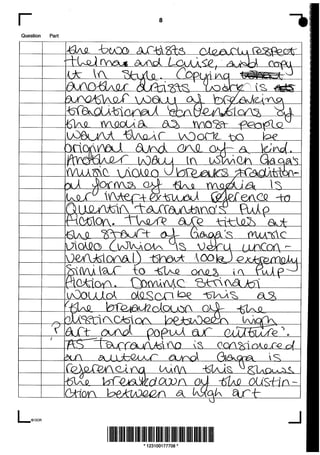 8
Question Part
the two artists clearly respect
Thelma and Louise, and copy
it in style. Copying
another artists work is
another way of breaking
traditional conventions of
the media as most people
want their work to be
original and one of a kind.
Another way in which Gaga's
music video breaks tradition-
al forms of the media is
her intertextual reference to
Quentin Tarrantino's Pulp
Fiction. There are titles at
the start of Gaga's music
video (which is very uncon-
ventional) that look extremely
similar to the ones in Pulp
Fiction. Dominic Strinati
would describe this as
'the breakdown of the
distinction between high
? art and popular culture'.
As Tarrantino is considered
an auteur and Gaga is
referencing him this shows
the breakdown of the distin-
ction between a high art
* 123100177708 *